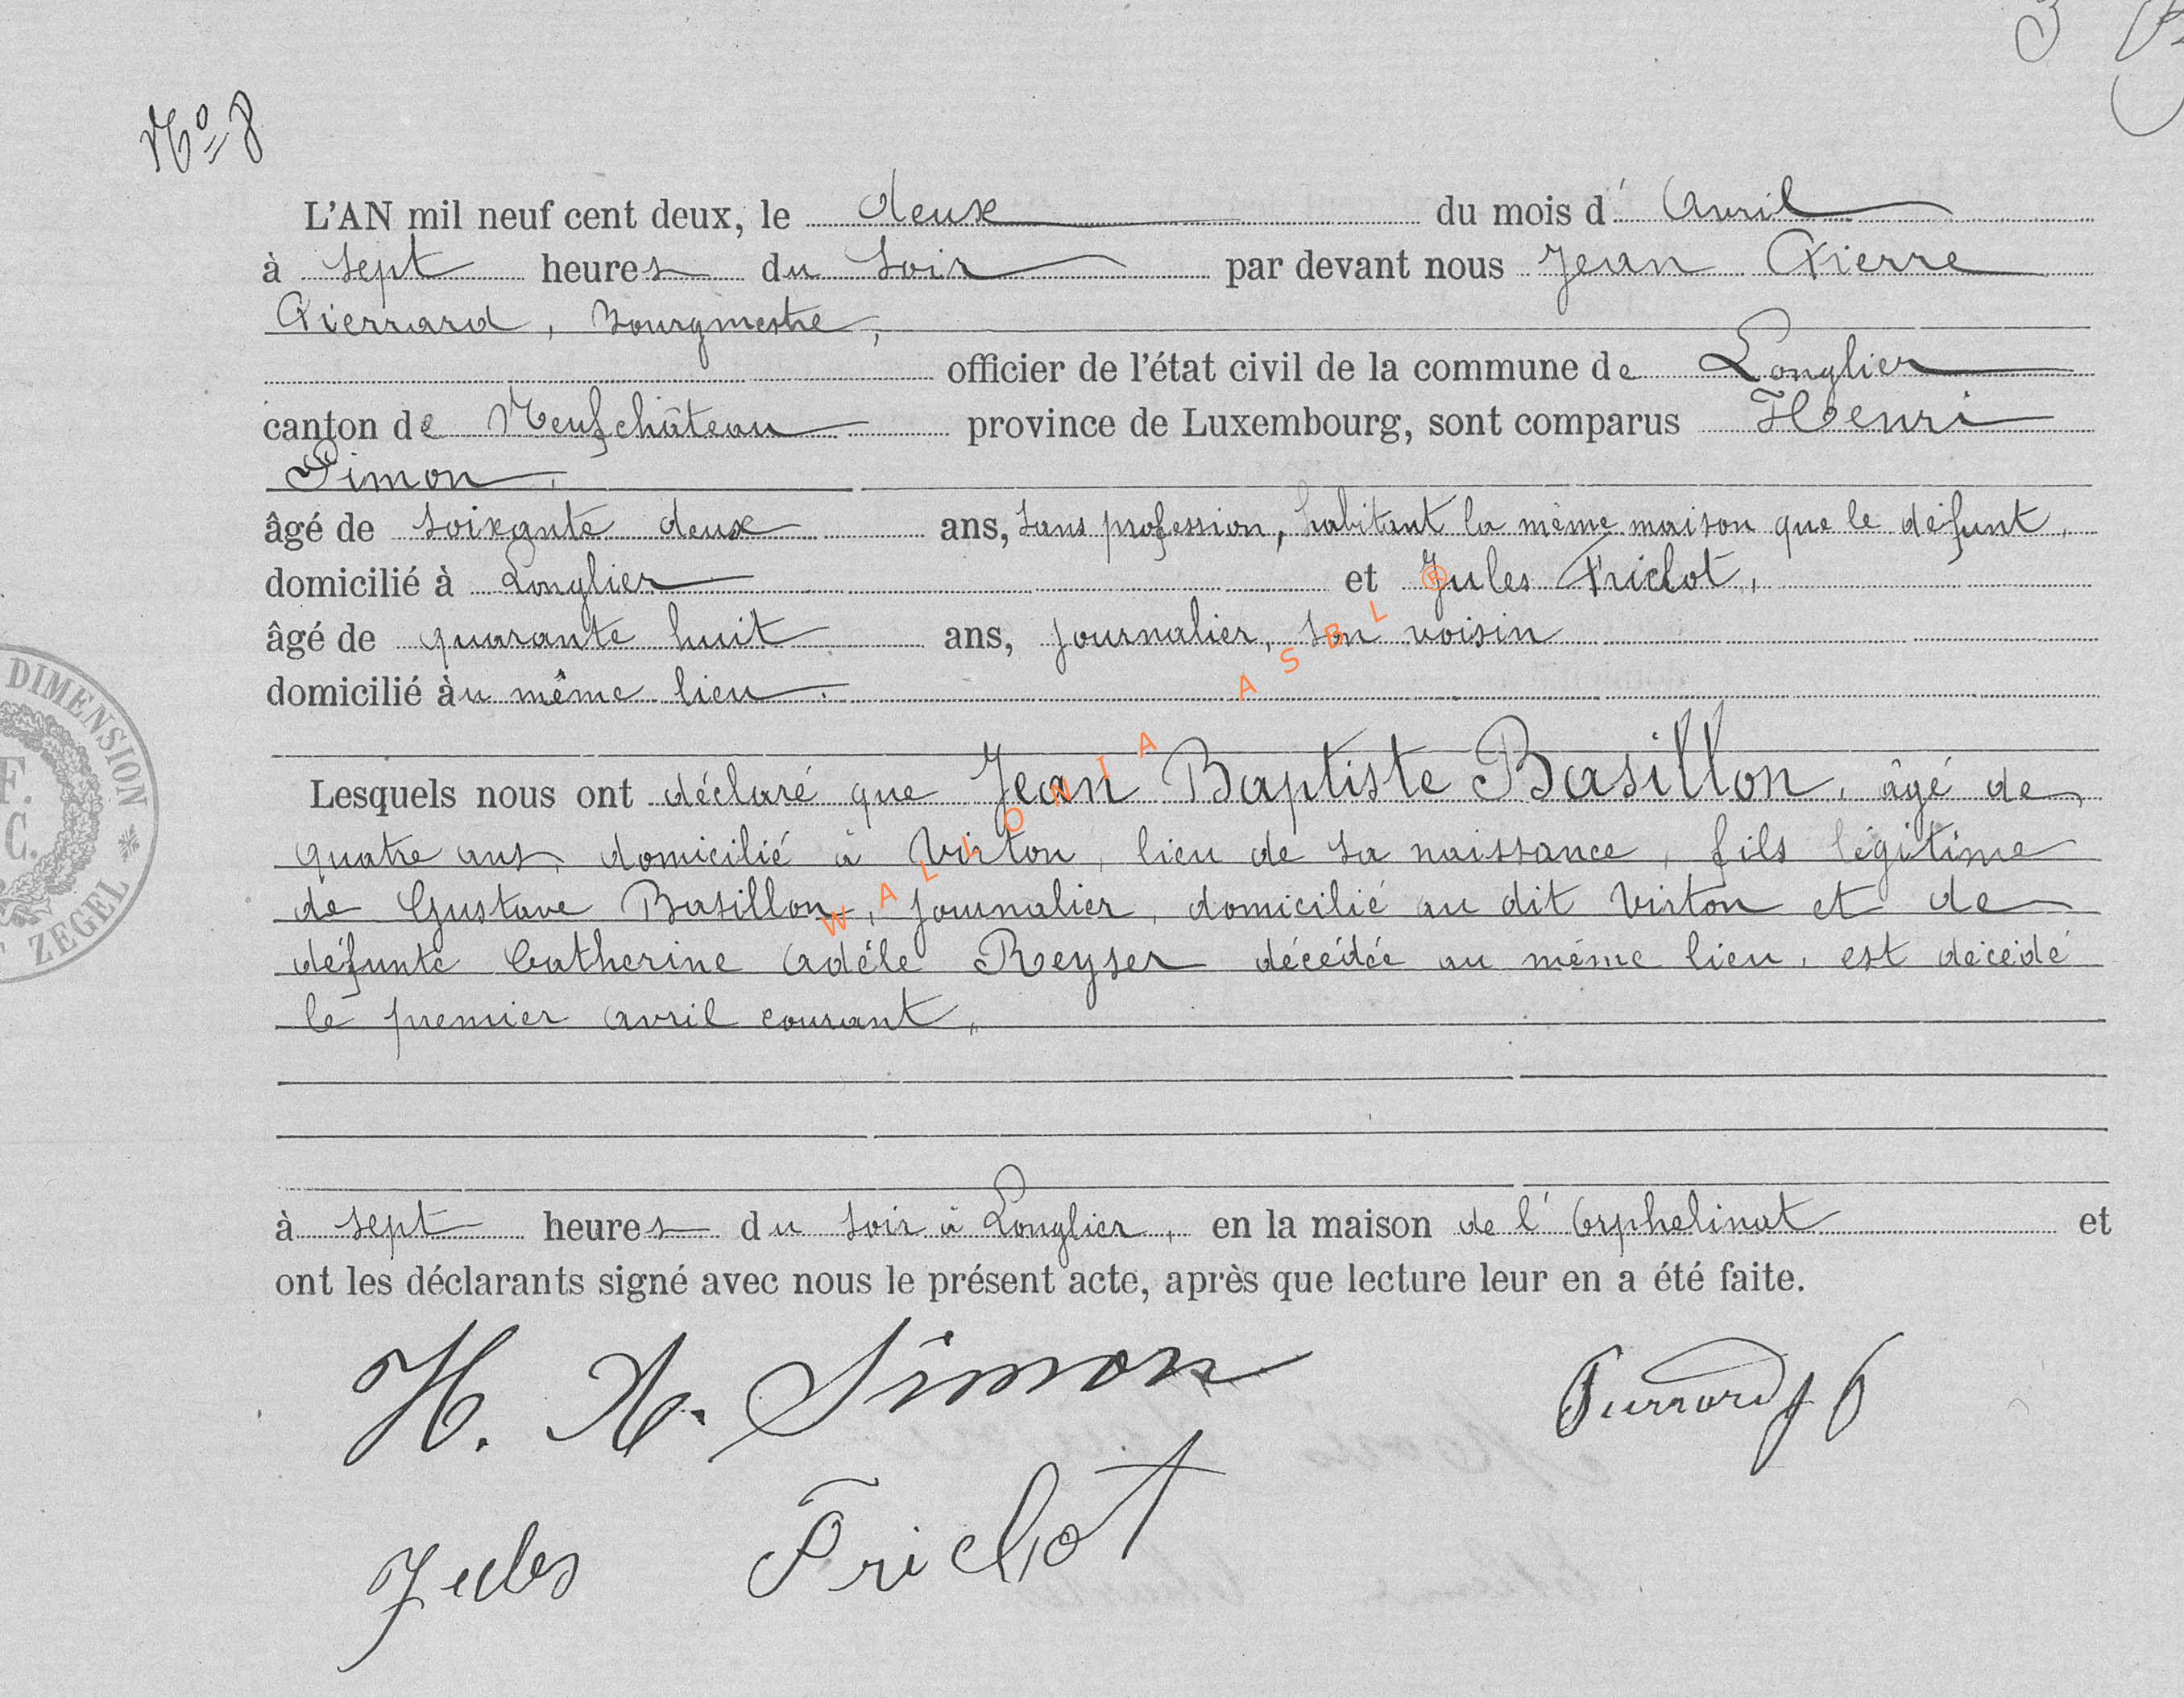 Nº 8
L'AN mil neuf cent deux, le deux du mois d' Avril
à sept heures du soir par devant nous Jean Pierre
Pierrard, Bourgmestre,
officier de l'état civil de la commune de Longlier
canton de Neufchâteau province de Luxembourg, sont comparus Henri
Simon,
âgé de soixante deux ans, sans profession, habitant la même maison que le défunt,
domicilié à Longlier et Jules Frichot,
âgé de quarante huit ans, journalier, son voisin
domicilié au même lieu.
Lesquels nous ont déclaré que Jean Baptiste Basillon, âgé de
quatre ans, domicilié à Virton, lieu de sa naissance, fils légitime
de Gustave Basillon, journalier, domicilié au dit Virton et de
défunte Catherine Adèle Reyser décédée au même lieu, est décédé
le premier avril courant,
à sept heures du soir à Longlier, en la maison de l'Orphelinat et
ont les déclarants signé avec nous le présent acte, après que lecture leur en a été faite.
H. N. Simon
Pierrard J P
Jules Frichot
DIMENSION
F.
C.
ZEGEL
WALLONIA ASBL ®